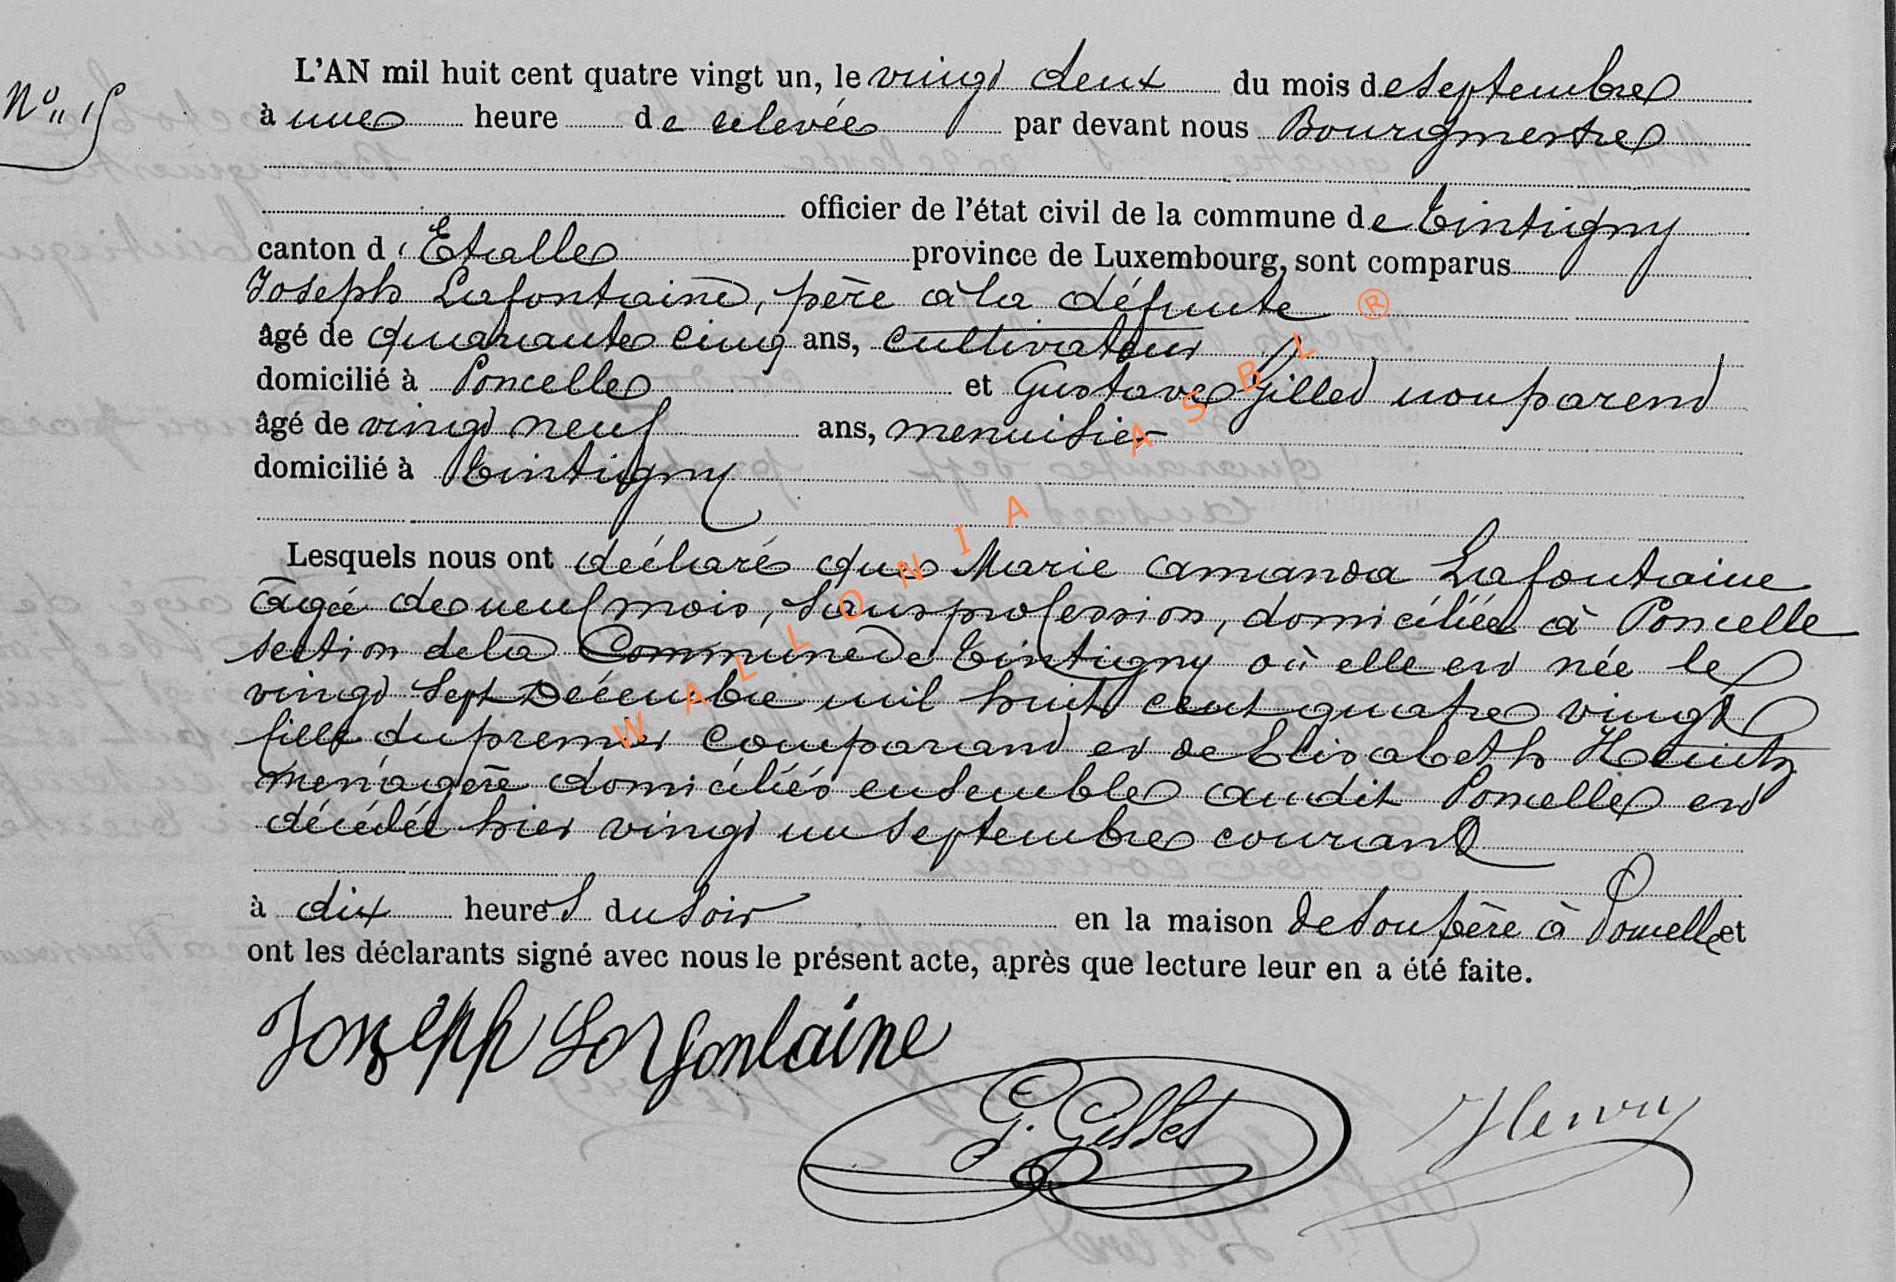 N° 15
L'AN mil huit cent quatre vingt un, le vingt deux du mois de septembre
à une heure de relevée par devant nous Bourgmestre
officier de l'état civil de la commune de Tintigny
canton d'Etalle province de Luxembourg, sont comparus
Joseph Lafontaine, père à la défunte
âgé de quarante cinq ans, cultivateur
domicilié à Poncelle et Gustave Gillet non parent
âgé de vingt neuf ans, menuisier
domicilié à Tintigny
Lesquels nous ont déclaré que Marie Amanda Lafontaine
âgée de neuf mois, sans profession, domiciliée à Poncelle
section de la Commune de Tintigny où elle est née le
vingt sept Décembre mil huit cent quatre vingt
fille du premier comparant et de Elisabeth
ménagère domiciliés ensemble audit Poncelle est
décédée hier vingt un septembre courant
à dix heures du soir en la maison de son père à Poncelle et
ont les déclarants signé avec nous le présent acte, après que lecture leur en a été faite.
Joseph Lafontaine
G. Gillet
Henry
WALLONIA ASBL ®